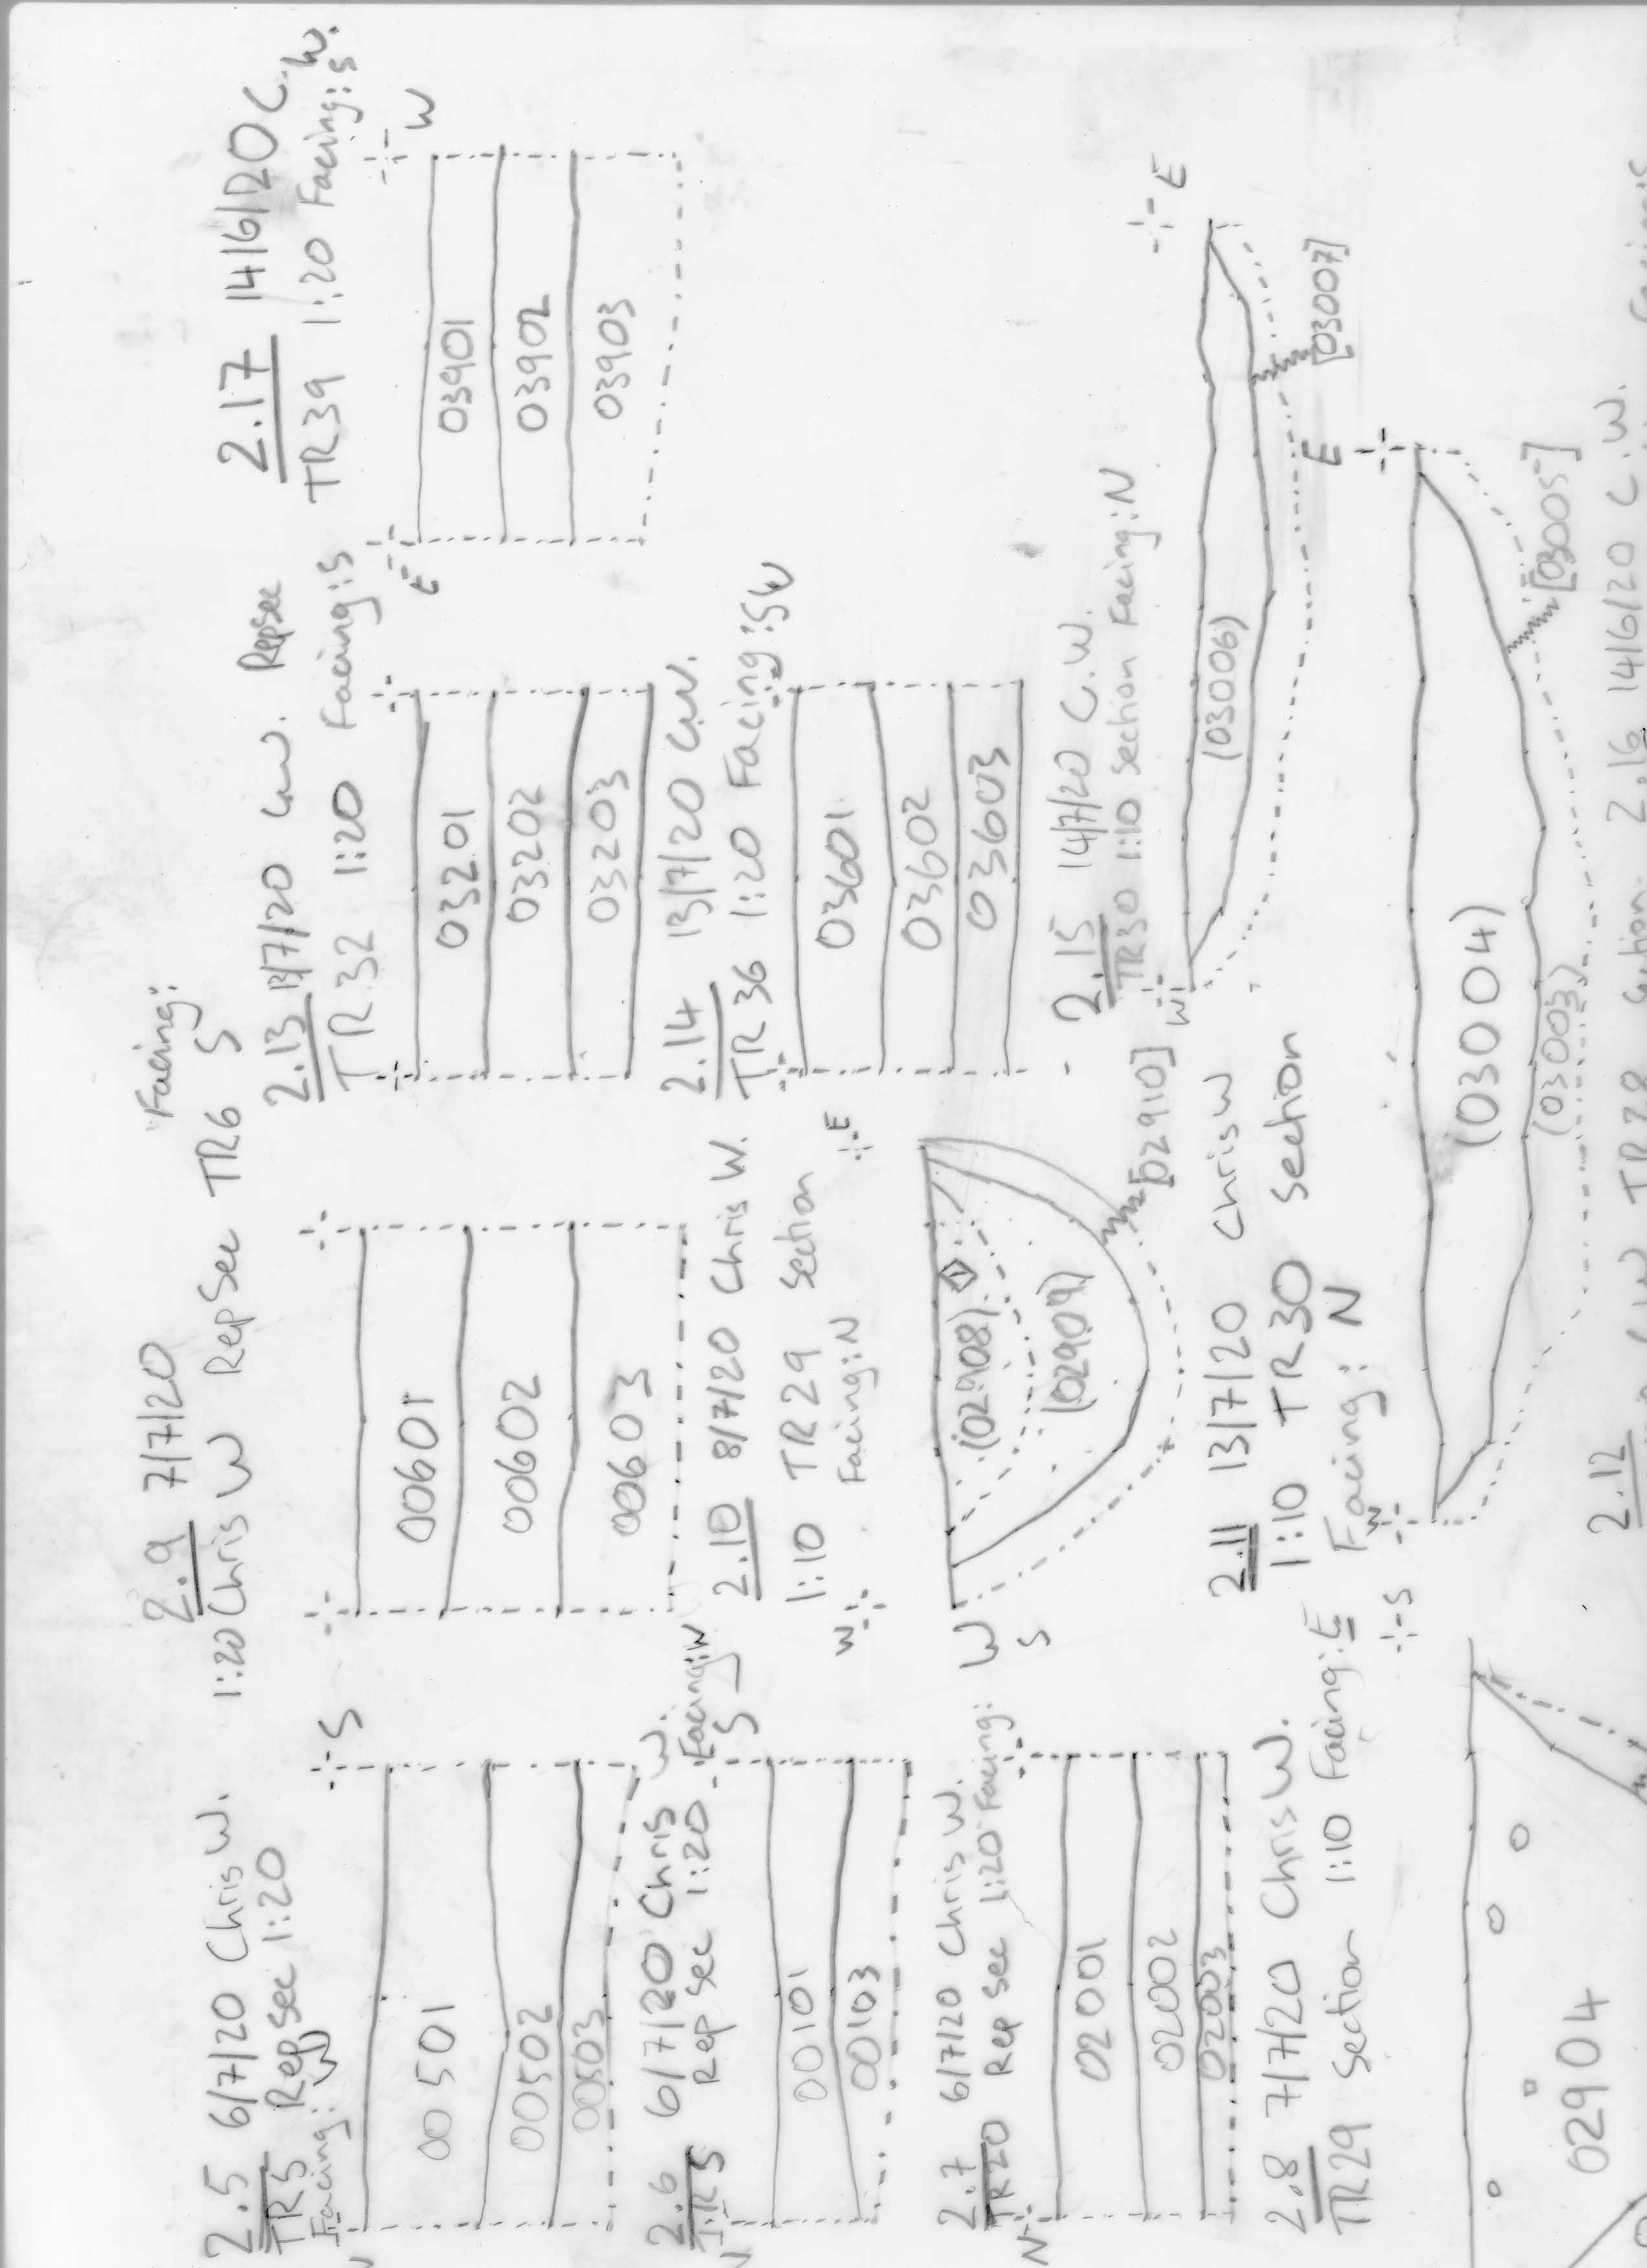 2.5 6/7/20 Chris W.
TR5 Rep sec 1:20
Facing: W
S
00501
00502
00503
2.6 6/7/20 Chris W.
TR5 Rep sec 1:20 Facing: W
S
00101
00103
2.7 6/7/20 Chris W.
TR20 Rep sec 1:20 Facing: W
N S
02001
02002
02003
2.8 7/7/20 Chris W.
TR29 Section 1:10 Facing: E
S
02904
2.9 7/7/20
1:20 Chris W Rep Sec TR6 Facing: S
00601
00602
00603
2.10 8/7/20 Chris W.
1:10 TR29 Section
Facing: N
W E
(02908) 1
(02909)
[02910]
2.11 13/7/20 Chris W
1:10 TR30 Section
Facing: N
W E
(03004)
(03003)
[03005]
2.12
TR28
2.13 13/7/20 C.W. Repsec
TR32 1:20 Facing: S
03201
03202
03203
2.14 13/7/20 C.W.
TR36 1:20 Facing: SW
03601
03602
03603
2.15 14/7/20 C.W.
TR30 1:10 Section Facing: N
W E
(03006)
[03007]
2.16 14/6/20 C.W.
2.17 14/6/20 C.W.
TR39 1:20 Facing: S
E W
03901
03902
03903